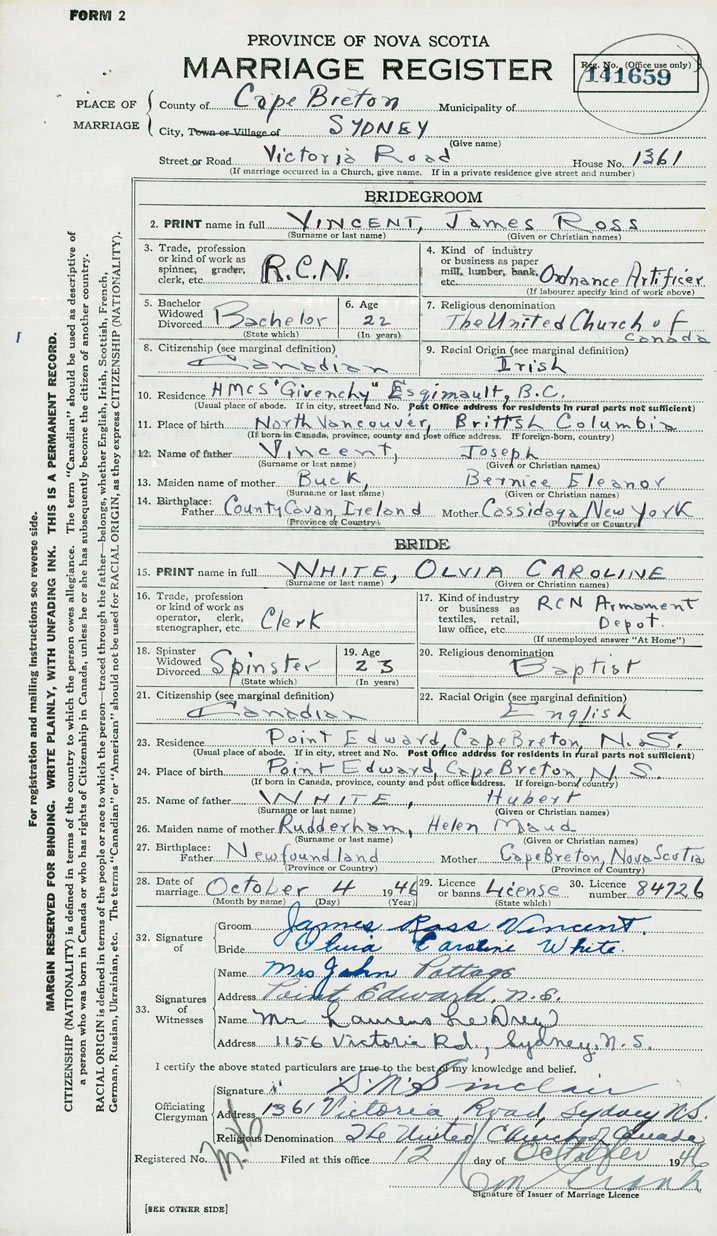 FORM 2
PROVINCE OF NOVA SCOTIA
MARRIAGE REGISTER
Reg. No. (Office use only)
141659
PLACE OF MARRIAGE
County of Cape Breton Municipality of
City, Town or Village of SYDNEY
(Give name)
Street or Road Victoria Road House No. 1361
(If marriage occurred in a Church, give name. If in a private residence give street and number)
BRIDEGROOM
2. PRINT name in full VINCENT, James Ross
(Surname or last name) (Given or Christian names)
3. Trade, profession or kind of work as spinner, grader, clerk, etc. R.C.N.
4. Kind of industry or business as paper mill, lumber, bank, etc. Ordnance Artificer
(If labourer specify kind of work above)
5. Bachelor Widowed Divorced Bachelor
(State which)
6. Age 22
(In years)
7. Religious denomination The United Church of Canada
8. Citizenship (see marginal definition) Canadian
9. Racial Origin (see marginal definition) Irish
10. Residence HMCS "Givenchy" Esqimault, B.C.
(Usual place of abode. If in city, street and No. Post Office address for residents in rural parts not sufficient)
11. Place of birth North Vancouver, Brittsh Columbia
(If born in Canada, province, county and post office address. If foreign-born, country)
12. Name of father Vincent, Joseph
(Surname or last name) (Given or Christian names)
13. Maiden name of mother Buck, Bernice Eleanor
(Surname or last name) (Given or Christian names)
14. Birthplace: Father County Cavan, Ireland Mother Cassidaga New York
(Province or Country) (Province or Country)
BRIDE
15. PRINT name in full WHITE, OLVIA CAROLINE
(Surname or last name) (Given or Christian names)
16. Trade, profession or kind of work as operator, clerk, stenographer, etc. Clerk
17. Kind of industry or business as textiles, retail, law office, etc. RCN Armament Depot.
(If unemployed answer "At Home")
18. Spinster Widowed Divorced Spinster
(State which)
19. Age 23
(In years)
20. Religious denomination Baptist
21. Citizenship (see marginal definition) Canadian
22. Racial Origin (see marginal definition) English
23. Residence Point Edward, Cape Breton, N.S.
(Usual place of abode. If in city, street and No. Post Office address for residents in rural parts not sufficient)
24. Place of birth Point Edward, Cape Breton, N.S.
(If born in Canada, province, county and post office address. If foreign-born, country)
25. Name of father WHITE, Hubert
(Surname or last name) (Given or Christian names)
26. Maiden name of mother Rudderham, Helen Maud
(Surname or last name) (Given or Christian names)
27. Birthplace: Father Newfoundland Mother Cape Breton, Nova Scotia
(Province or Country) (Province or Country)
28. Date of marriage October 4 1946
(Month by name) (Day) (Year)
29. Licence or banns License
(State which)
30. Licence number 84726
32. Signature of
Groom James Ross Vincent.
Bride Olvia Caroline White.
33. Signatures of Witnesses
Name Mrs John Pottage
Address Point Edward, N.S.
Name Mr Laurens LeDrew
Address 1156 Victoria Rd., Sydney, N.S.
I certify the above stated particulars are true to the best of my knowledge and belief.
Officiating Clergyman
Signature Sinclair
Address 1361 Victoria Road, Sydney N.S.
Religious Denomination The United Church of Canada
Registered No. Filed at this office 12 day of October 1946
Signature of Issuer of Marriage Licence
[SEE OTHER SIDE]
For registration and mailing instructions see reverse side.
MARGIN RESERVED FOR BINDING. WRITE PLAINLY, WITH UNFADING INK. THIS IS A PERMANENT RECORD.
CITIZENSHIP (NATIONALITY) is defined in terms of the country to which the person owes allegiance. The term "Canadian" should be used as descriptive of
a person who was born in Canada or who has rights of Citizenship in Canada, unless he or she has subsequently become the citizen of another country.
RACIAL ORIGIN is defined in terms of the people or race to which the person—traced through the father—belongs, whether English, Irish, Scottish, French,
German, Russian, Ukrainian, etc. The terms "Canadian" or "American" should not be used for RACIAL ORIGIN, as they express CITIZENSHIP (NATIONALITY).